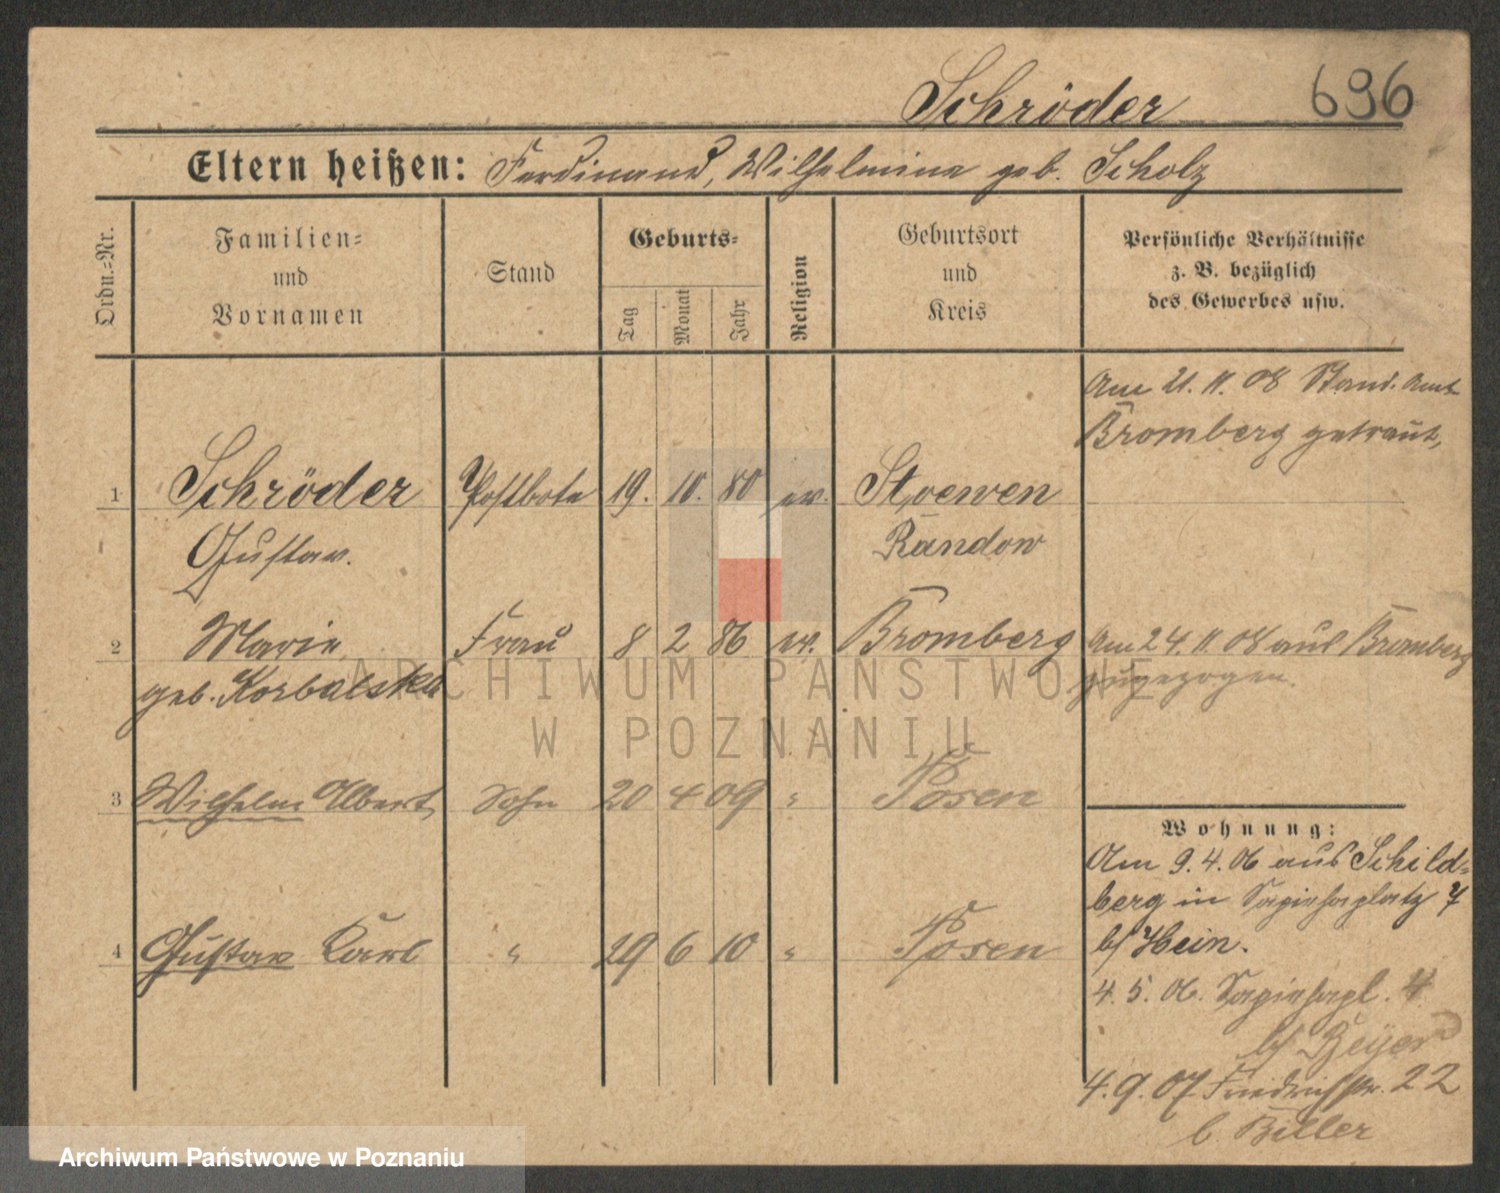 Schröder 696
Eltern heißen: Ferdinand, Wilhelmine geb. Scholz
Ordn.-Nr.
Familien-
und
Vornamen
Stand
Geburts-
Tag
Monat
Jahr
Religion
Geburtsort
und
Kreis
Persönliche Verhältnisse
z. B. bezüglich
des Gewerbes usw.
Am 21. 11. 08 Stand. Amt
Bromberg getraut,
1 Schröder Postbote 19. 10. 80 ev. Stoewen
Gustav. Randow
2 Marie Frau 8 2 86 ev. Bromberg Am 24. 11. 08 aus Bromberg
geb. Korbalska zugezogen.
3 Wilhelm Albert Sohn 20 4 09 " Posen
4 Gustav Karl " 29 6 10 " Posen
Wohnung:
Am 9. 4. 06 aus Schild-
berg in Sapiehaplatz 7
b/ Hein.
4. 5. 06. Sapiehapl. 4
b/ Beyer
4. 9. 07 Friedrichstr. 22
b. Biller
ARCHIWUM PAŃSTWOWE
W POZNANIU
Archiwum Państwowe w Poznaniu